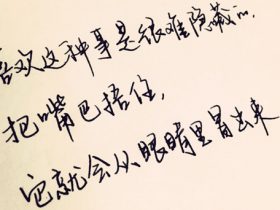 喜欢这种事是很难隐藏的,
把嘴巴捂住,
它就会从眼睛里冒出来